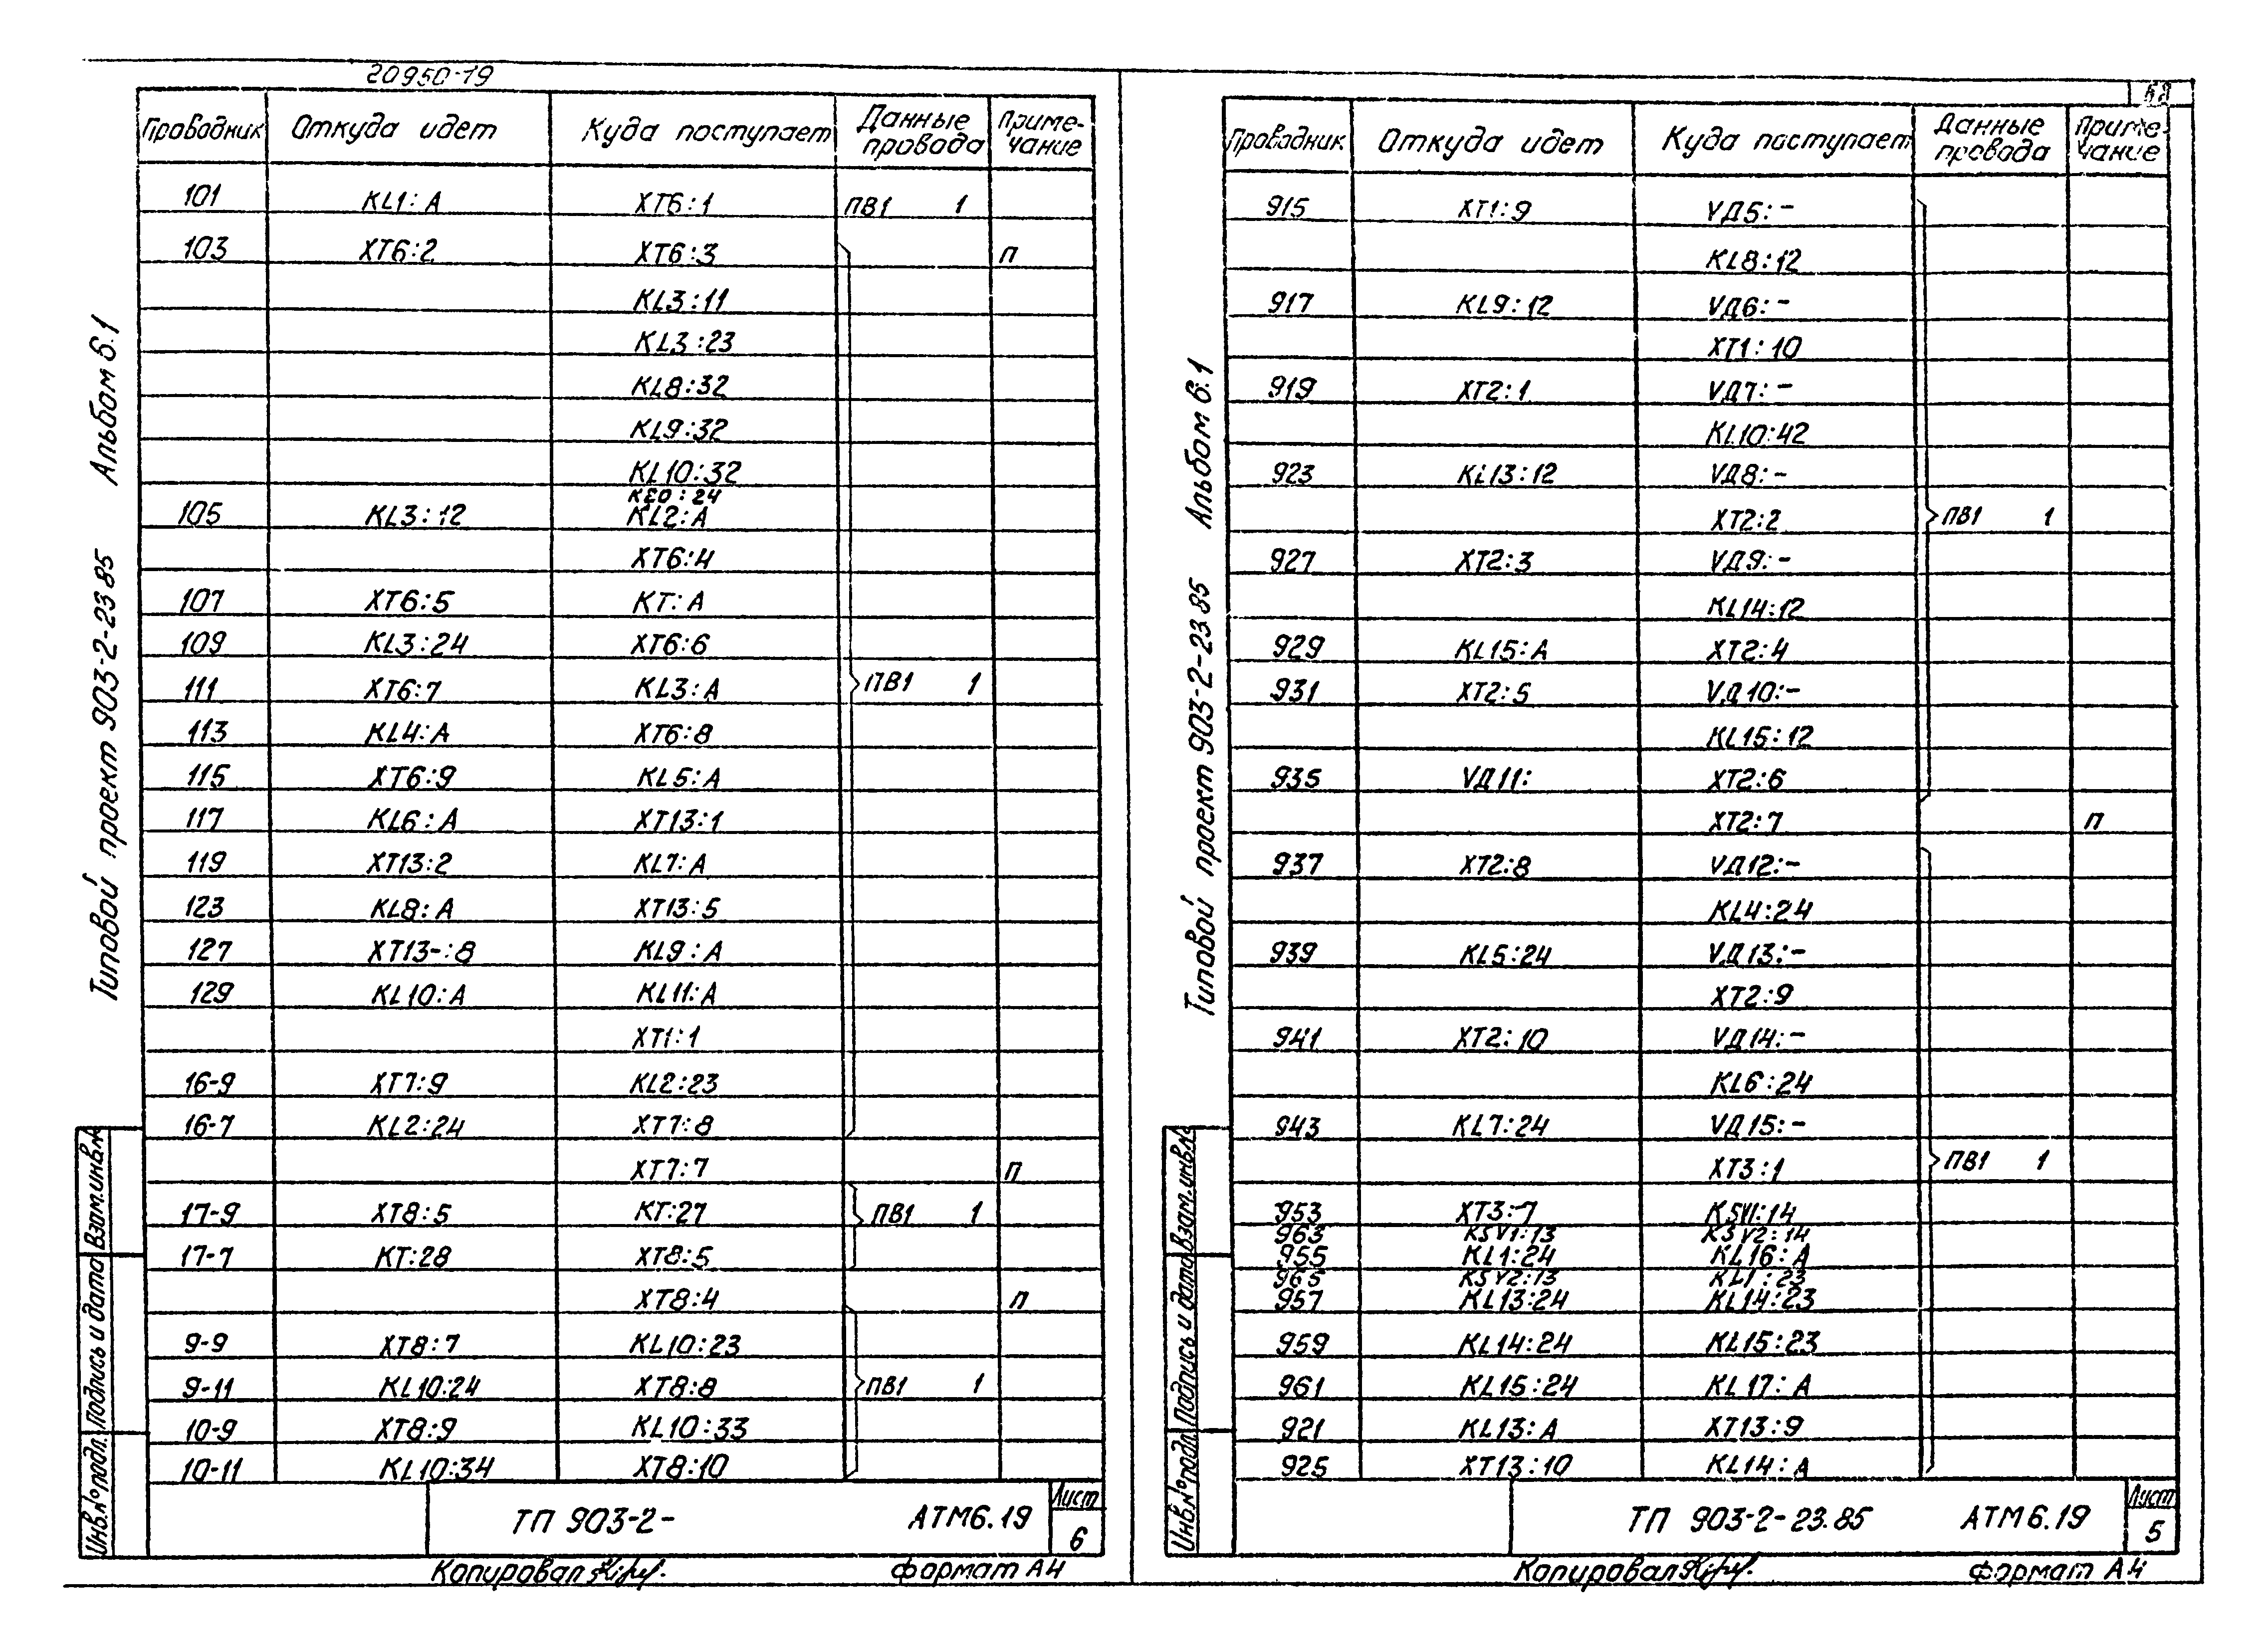 20950-19
Проводник Откуда идет Куда поступает Данные провода Приме-чание
101 KL1:А ХТ6:1 ПВ1 1
103 ХТ6:2 ХТ6:3 П
KL3:11
KL3:23
KL8:32
KL9:32
KL10:32
105 KL3:12 KL2:А
ХТ6:4
107 ХТ6:5 КТ:А
109 KL3:24 ХТ6:6
111 ХТ6:7 KL3:А ПВ1 1
113 KL4:А ХТ6:8
115 ХТ6:9 KL5:А
117 KL6:А ХТ13:1
119 ХТ13:2 KL7:А
123 KL8:А ХТ13:5
127 ХТ13-:8 KL9:А
129 KL10:А KL11:А
ХТ1:1
16-9 ХТ7:9 KL2:23
16-7 KL2:24 ХТ7:8
ХТ7:7 П
17-9 ХТ8:5 КТ:27 ПВ1 1
17-7 КТ:28 ХТ8:5
ХТ8:4 П
9-9 ХТ8:7 KL10:23
9-11 KL10:24 ХТ8:8 ПВ1 1
10-9 ХТ8:9 KL10:33
10-11 KL10:34 ХТ8:10
ТП 903-2- АТМ6.19 Лист 6
Копировал формат А4
Альбом 6.1
Типовой проект 903-2-23 85
Взам.инв.№
Подпись и дата
Инв.№подл.
Проводник Откуда идет Куда поступает Данные провода Приме-чание
915 ХТ1:9 VД5:-
KL8:12
917 KL9:12 VД6:-
ХТ1:10
919 ХТ2:1 VД7:-
KL10:42
923 KL13:12 VД8:-
ХТ2:2 ПВ1 1
927 ХТ2:3 VД9:-
KL14:12
929 KL15:А ХТ2:4
931 ХТ2:5 VД10:-
KL15:12
935 VД11: ХТ2:6
ХТ2:7 П
937 ХТ2:8 VД12:-
KL4:24
939 KL5:24 VД13:-
ХТ2:9
941 ХТ2:10 VД14:-
KL6:24
943 KL7:24 VД15:-
ХТ3:1 ПВ1 1
953 ХТ3:7 KSV1:14
963 KSV1:13 KSV2:14
955 KL1:24 KL16:А
965 KSV2:13 KL1:23
957 KL13:24 KL14:23
959 KL14:24 KL15:23
961 KL15:24 KL17:А
921 KL13:А ХТ13:9
925 ХТ13:10 KL14:А
ТП 903-2-23.85 АТМ6.19 Лист 5
Копировал формат А4
Альбом 6.1
Типовой проект 903-2-23 85
Взам.инв.№
Подпись и дата
Инв.№подл.